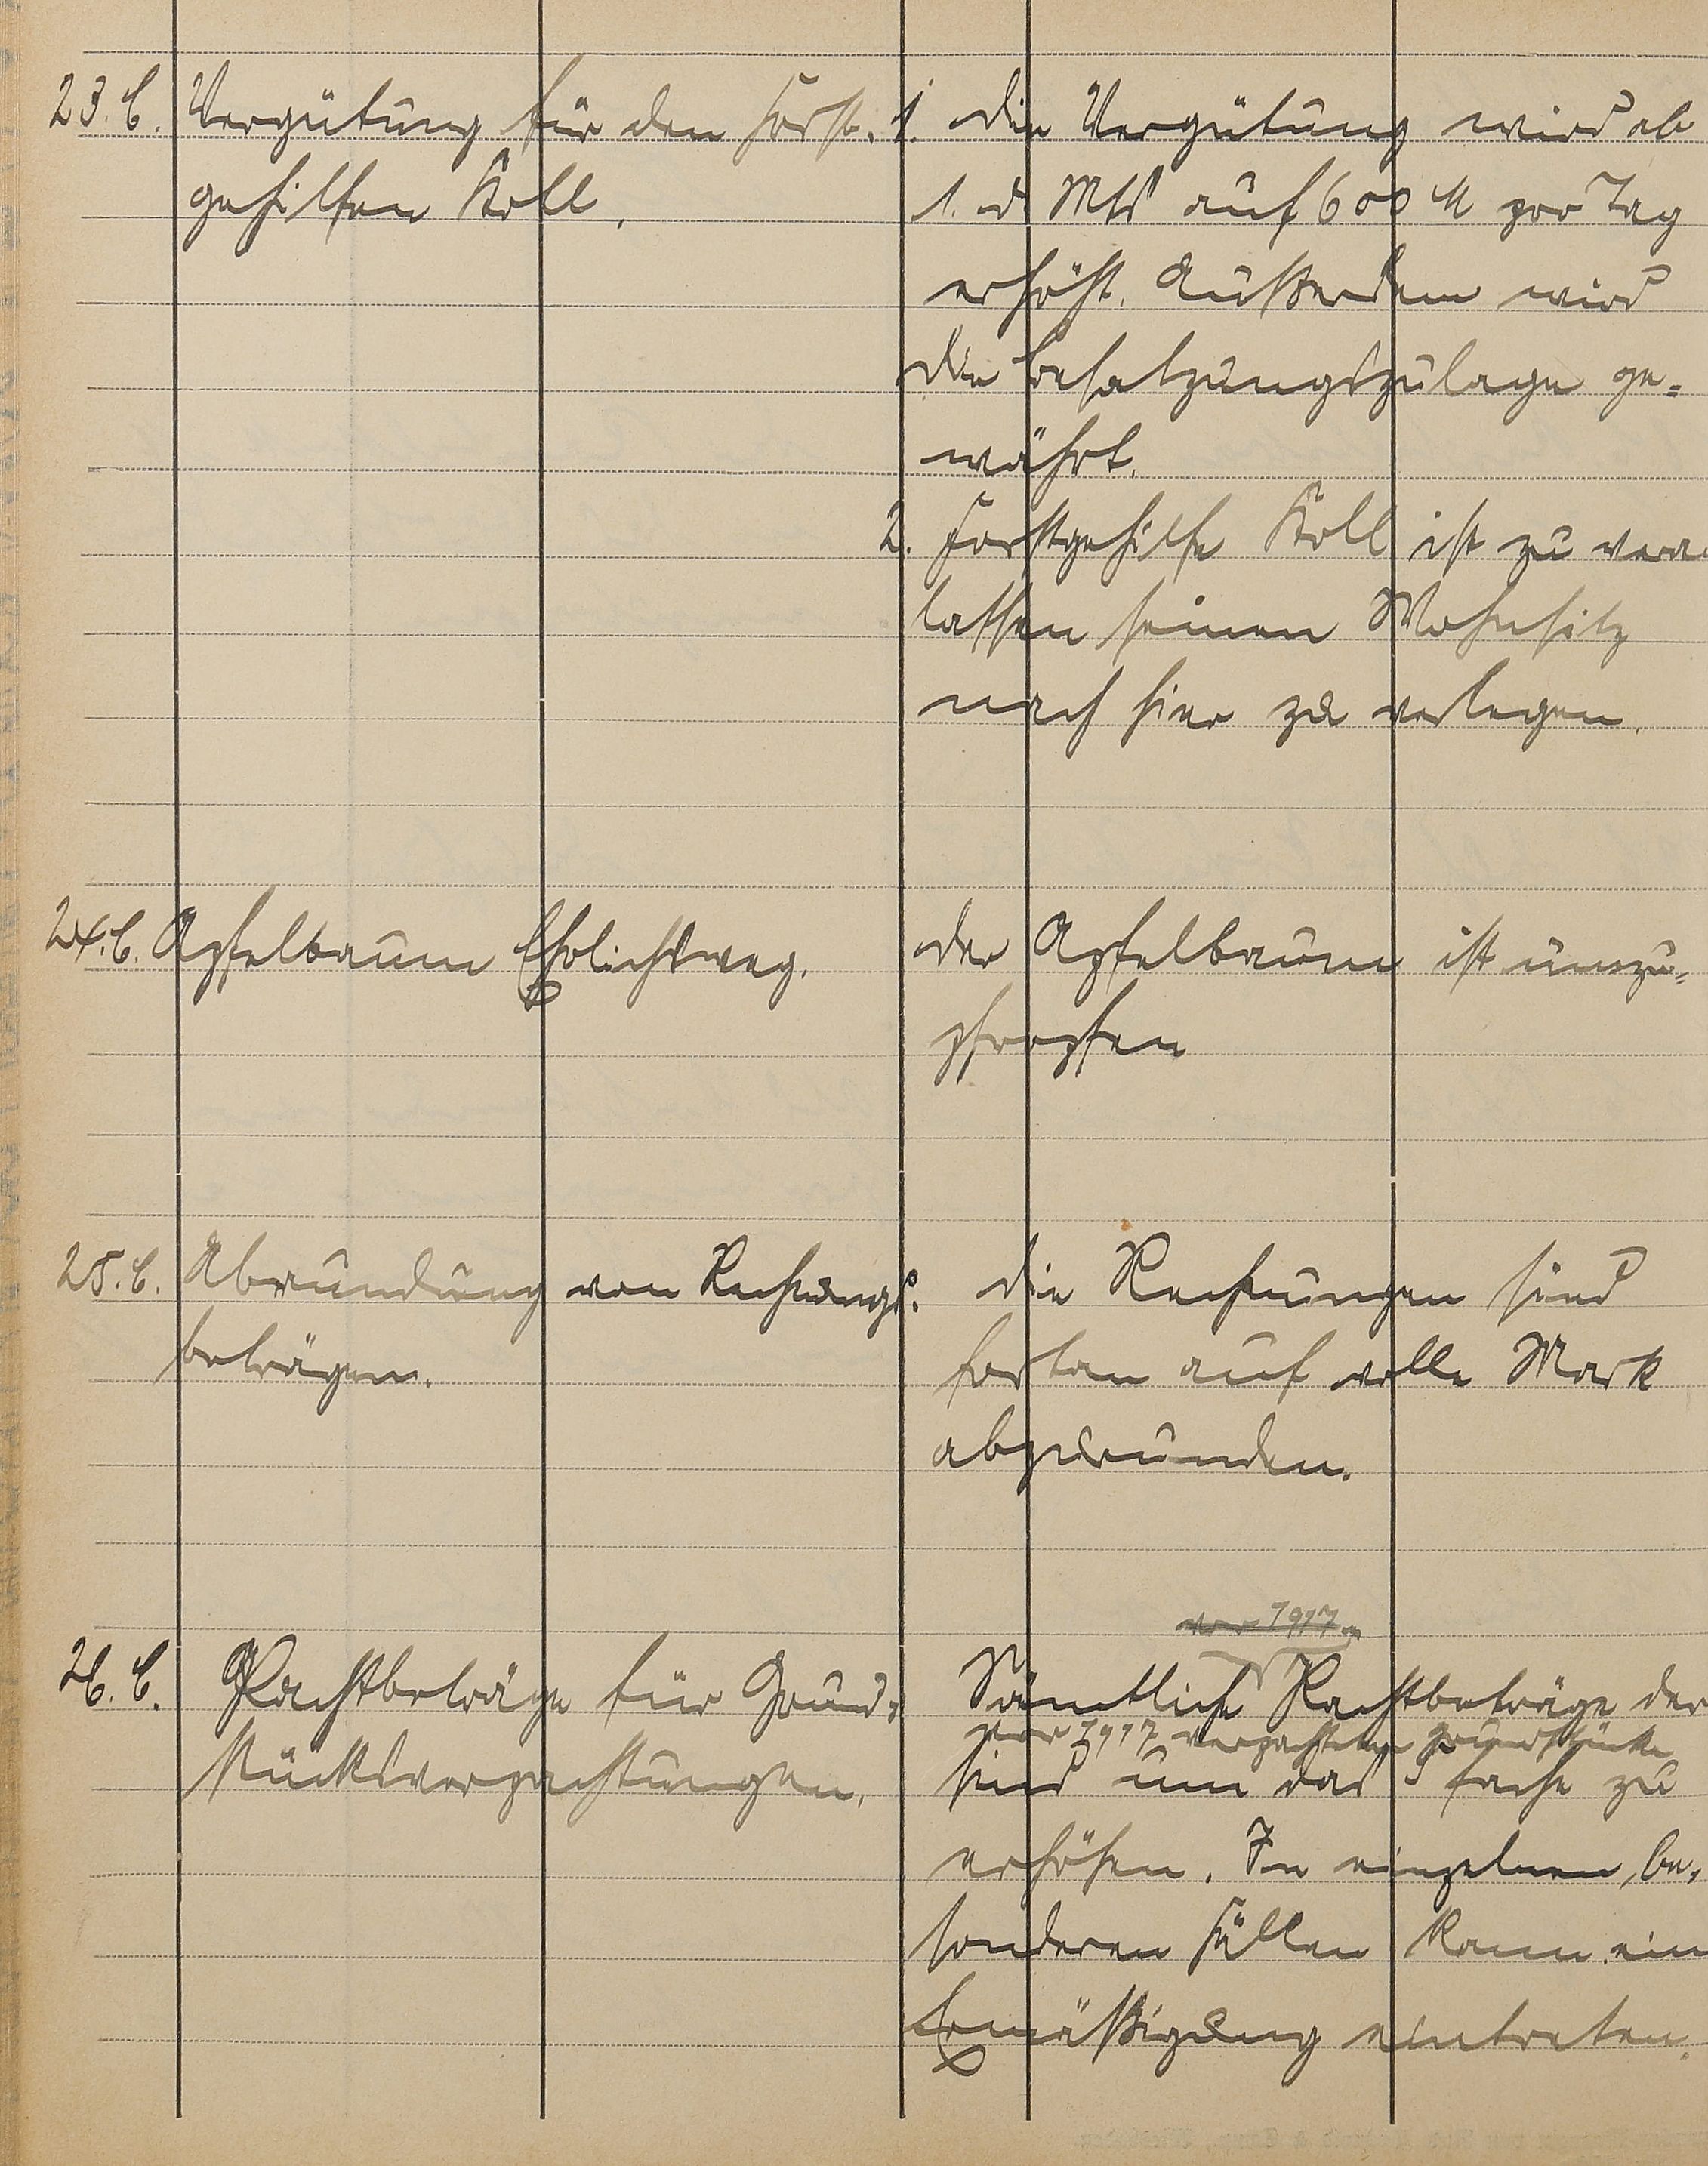 23. C. Vergütung für den Forst-
gehilfen Koll.
1. Die Vergütung wird ab
1. d. Mts auf 600 M pro Tag
erhöht. Außerdem wird
die Besatzungszulage ge=
währt.
2. Forstgehilfe Koll ist zu veran
lassen seinen Wohnsitz
nach hier zu verlegen.
24. C. Apfelbaum Ehrlichsweg.
Der Apfelbaum ist umzu=
pfropfen
25. C. Abrundung von Rechnungs-
beträgen.
Die Rechnungen sind
fortan auf volle Mark
abzurunden.
26. C. Pachtbeträge für Grund=
stücksverpachtungen.
vor 1917
Sämtliche Pachtbeträge der
vor 1917 verpachteten Grundstücke
sind um das 5 fache zu
erhöhen. In einzelnen, be=
sonderen Fällen kann ein
Ermäßigung eintreten.